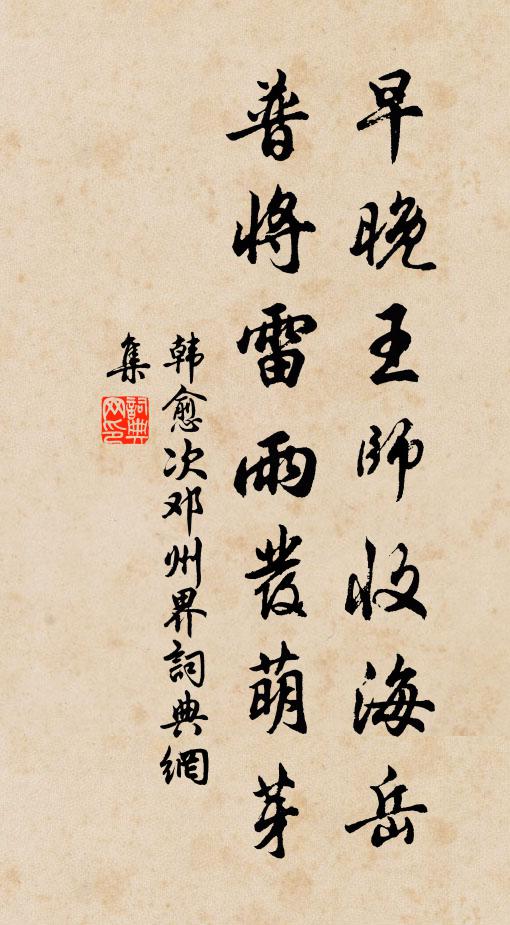 早晚王师收海岳
普将雷雨發萌芽
韩愈次邓州界詞典網
集
詞典网印